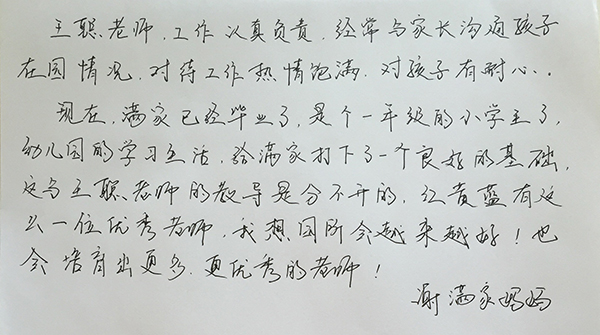 王职老师，工作认真负责，经常与家长沟通孩子
在园情况，对待工作热情饱满，对孩子有耐心..
现在，满家已经毕业了，是个一年级的小学生了，
幼儿园的学习生活，给满家打下了一个良好的基础，
这与王职老师的教导是分不开的，红黄蓝有这
么一位优秀老师，我想园所会越来越好！也
会培育出更多、更优秀的老师！
谢满家妈妈